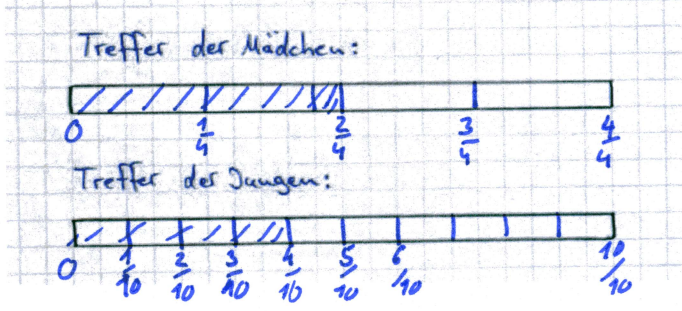 Treffer der Mädchen:
0 1/4 2/4 3/4 4/4
Treffer der Jungen:
0 1/10 2/10 3/10 4/10 5/10 6/10 10/10